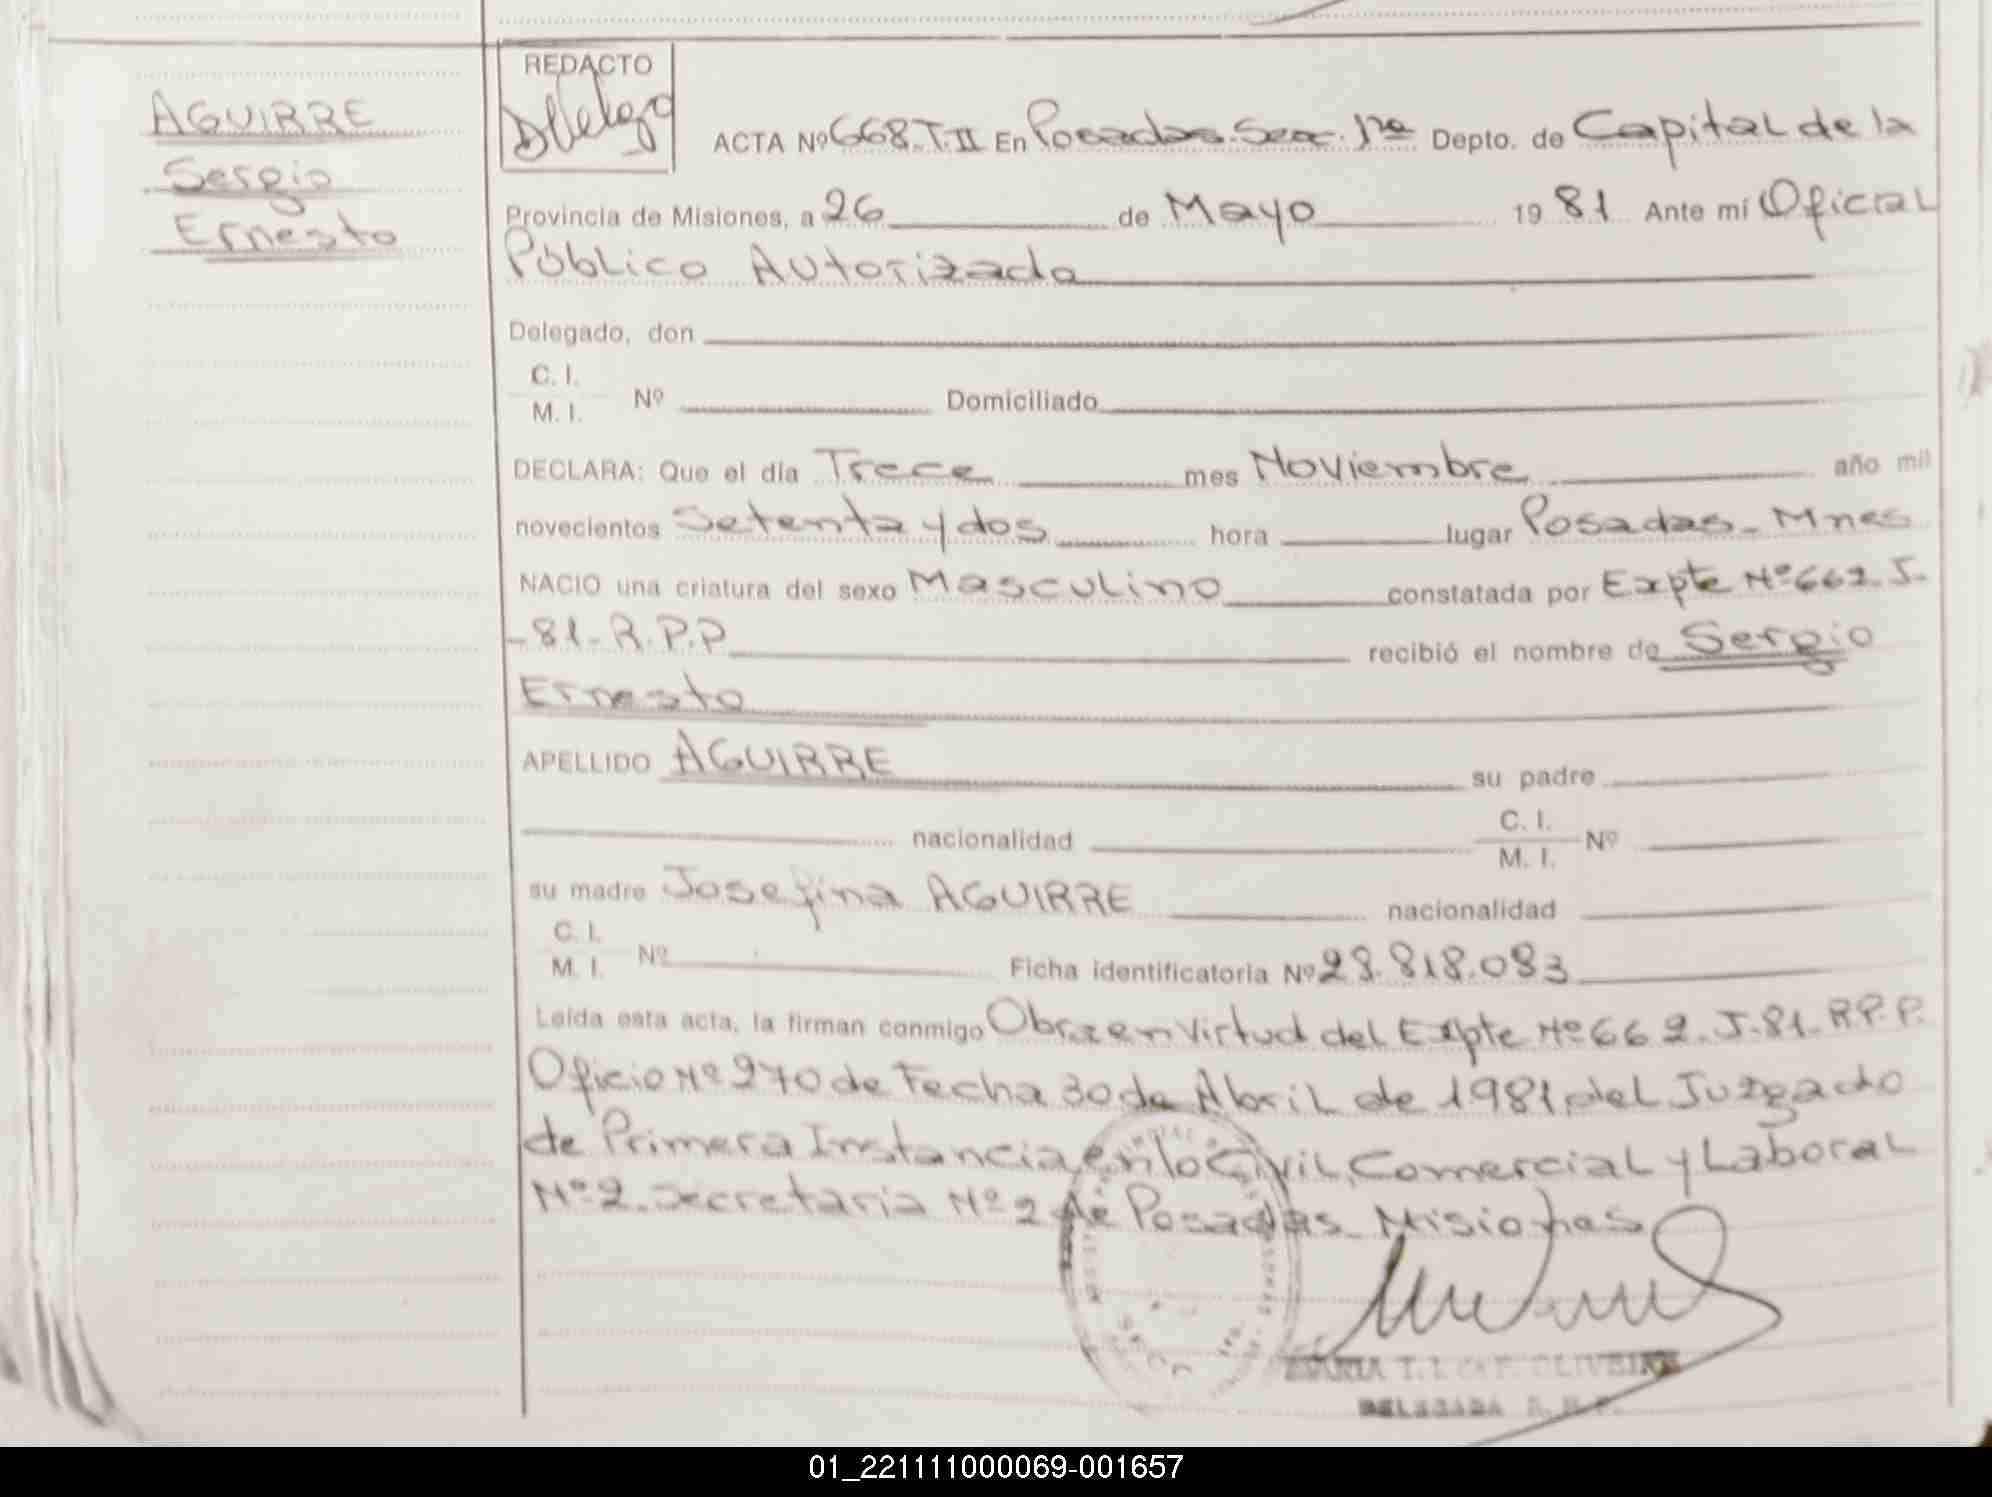 AGUIRRE
Sergio
Ernesto
REDACTO
ACTA Nº 668.T.II En Posadas.Sec.1ra Depto. de Capital de la
Provincia de Misiones, a 26 de Mayo 1981 Ante mí Oficial
Público Autorizado
Delegado, don
C. I.
M. I. Nº Domiciliado
DECLARA: Que el día Trece mes Noviembre año mil
novecientos Setenta y dos hora lugar Posadas - Mnes
NACIO una criatura del sexo Masculino constatada por Expte Nº 662.J-
-81-R.P.P recibió el nombre de Sergio
Ernesto
APELLIDO AGUIRRE su padre
nacionalidad C. I.
M. I. Nº
su madre Josefina AGUIRRE nacionalidad
C. I.
M. I. Nº Ficha identificatoria Nº 28.818.083
Leída esta acta, la firman conmigo Obra en virtud del Expte Nº 662.J-81-R.P.P.
Oficio Nº 270 de Fecha 30 de Abril de 1981, del Juzgado
de Primera Instancia en lo Civil, Comercial y Laboral
Nº 2. Secretaria Nº 2 de Posadas Misiones
MARIA T. OLIVEIRA
DELEGADA R. P. P.
01_221111000069-001657